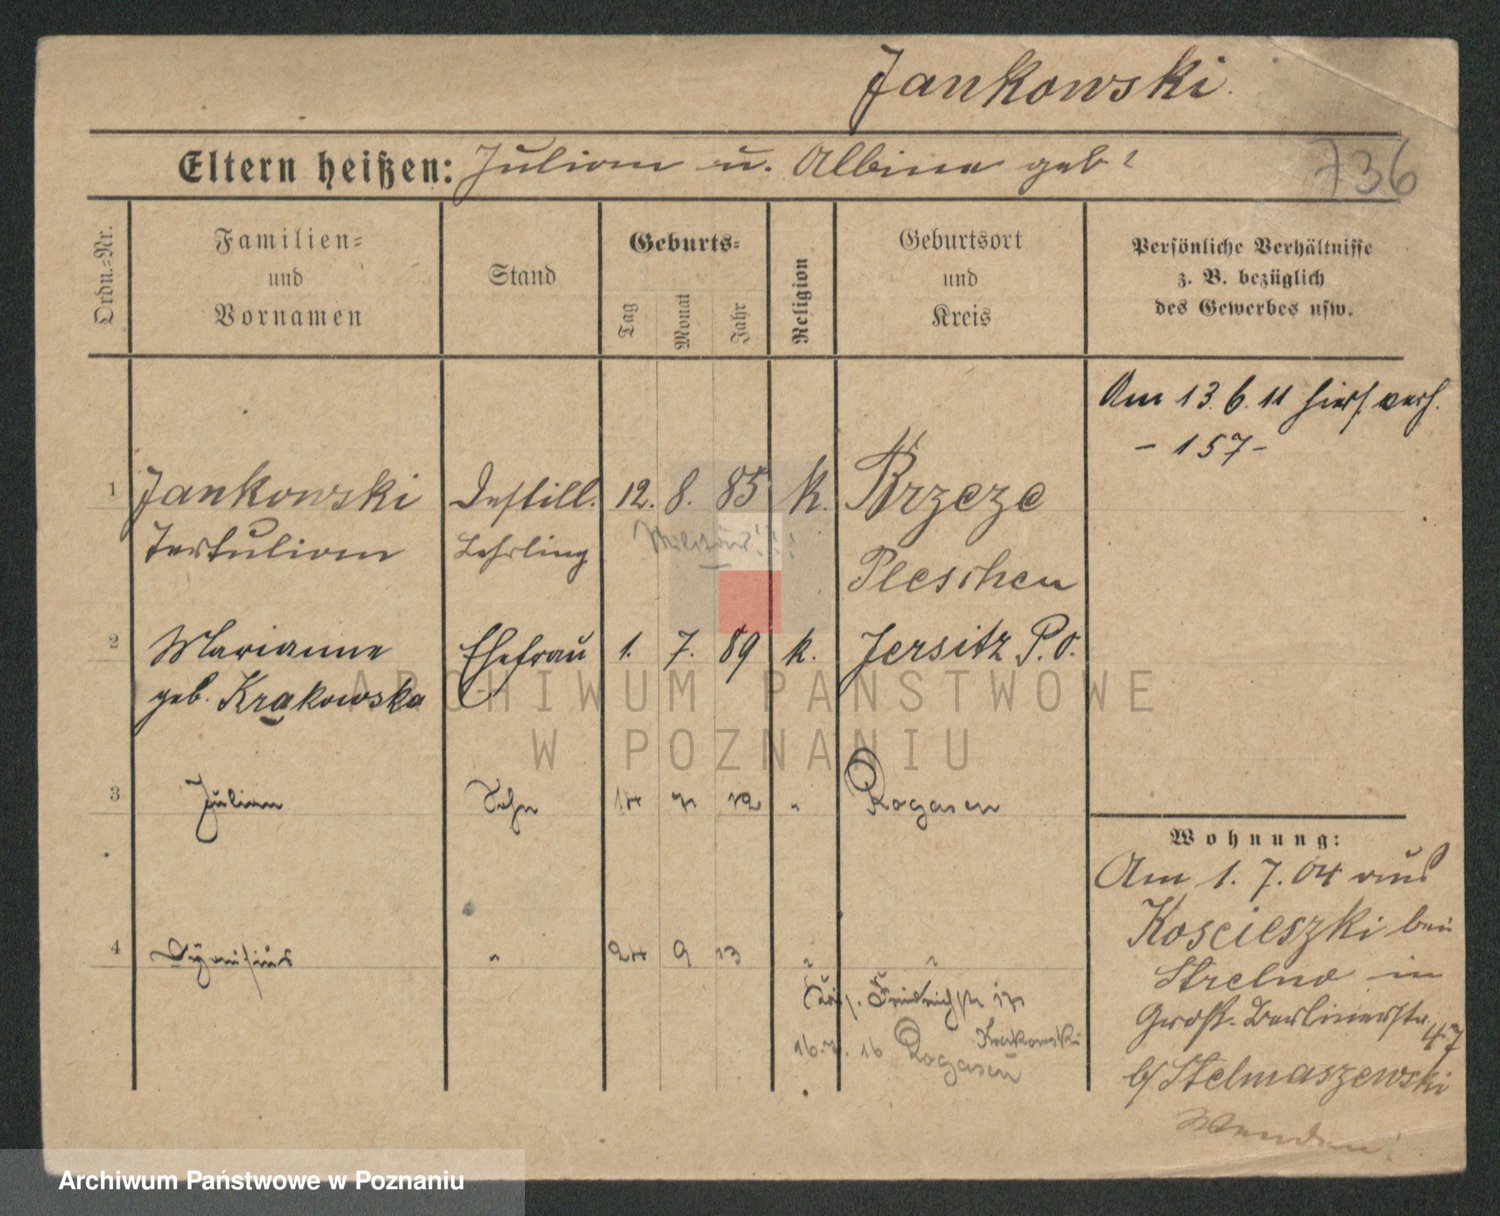 Jankowski.
Eltern heißen: Julian u. Albina geb?
736
Ordn.-Nr.
Familien-
und
Vornamen
Stand
Geburts-
Tag
Monat
Jahr
Religion
Geburtsort
und
Kreis
Persönliche Verhältnisse
z. B. bezüglich
des Gewerbes usw.
Am 13. 6. 11 hier verh.
- 157 -
1 Jankowski Destill. 12. 8. 85 k. Brzeze
Tertulian Lehrling Militär!!! Pleschen
2 Marianna Ehefrau 1. 7. 89 k. Jersitz P.O.
geb. Krakowska
ARCHIWUM PAŃSTWOWE
W POZNANIU
3 Julian Sohn 14 7 12 " Rogasen
Wohnung:
Am 1. 7. 04 aus
Koscieszki bei
Strelno in
Große Berlinerstr. 47
b/ Stelmaszewski
Wenden!
4 " 24 9 13 "
16. 16 Rogasen
Krakowski
Archiwum Państwowe w Poznaniu